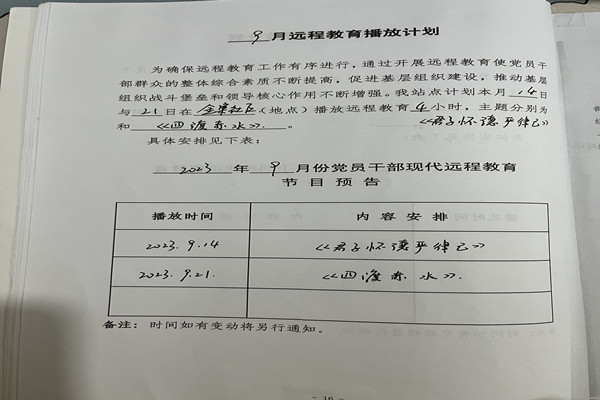 9月远程教育播放计划
为确保远程教育工作有序进行，通过开展远程教育使党员干
部群众的整体综合素质不断提高，促进基层组织建设，推动基层
组织战斗堡垒和领导核心作用不断增强。我站点计划本月14日
与21日在社区(地点)播放远程教育4小时，主题分别为
《君子怀德严律己》
和《四渡赤水》。
具体安排见下表：
2023年9月份党员干部现代远程教育
节目预告
播放时间 内容安排
2023.9.14 《君子怀德严律己》
2023.9.21. 《四渡赤水》.
备注：时间如有变动将另行通知。
- 16 -